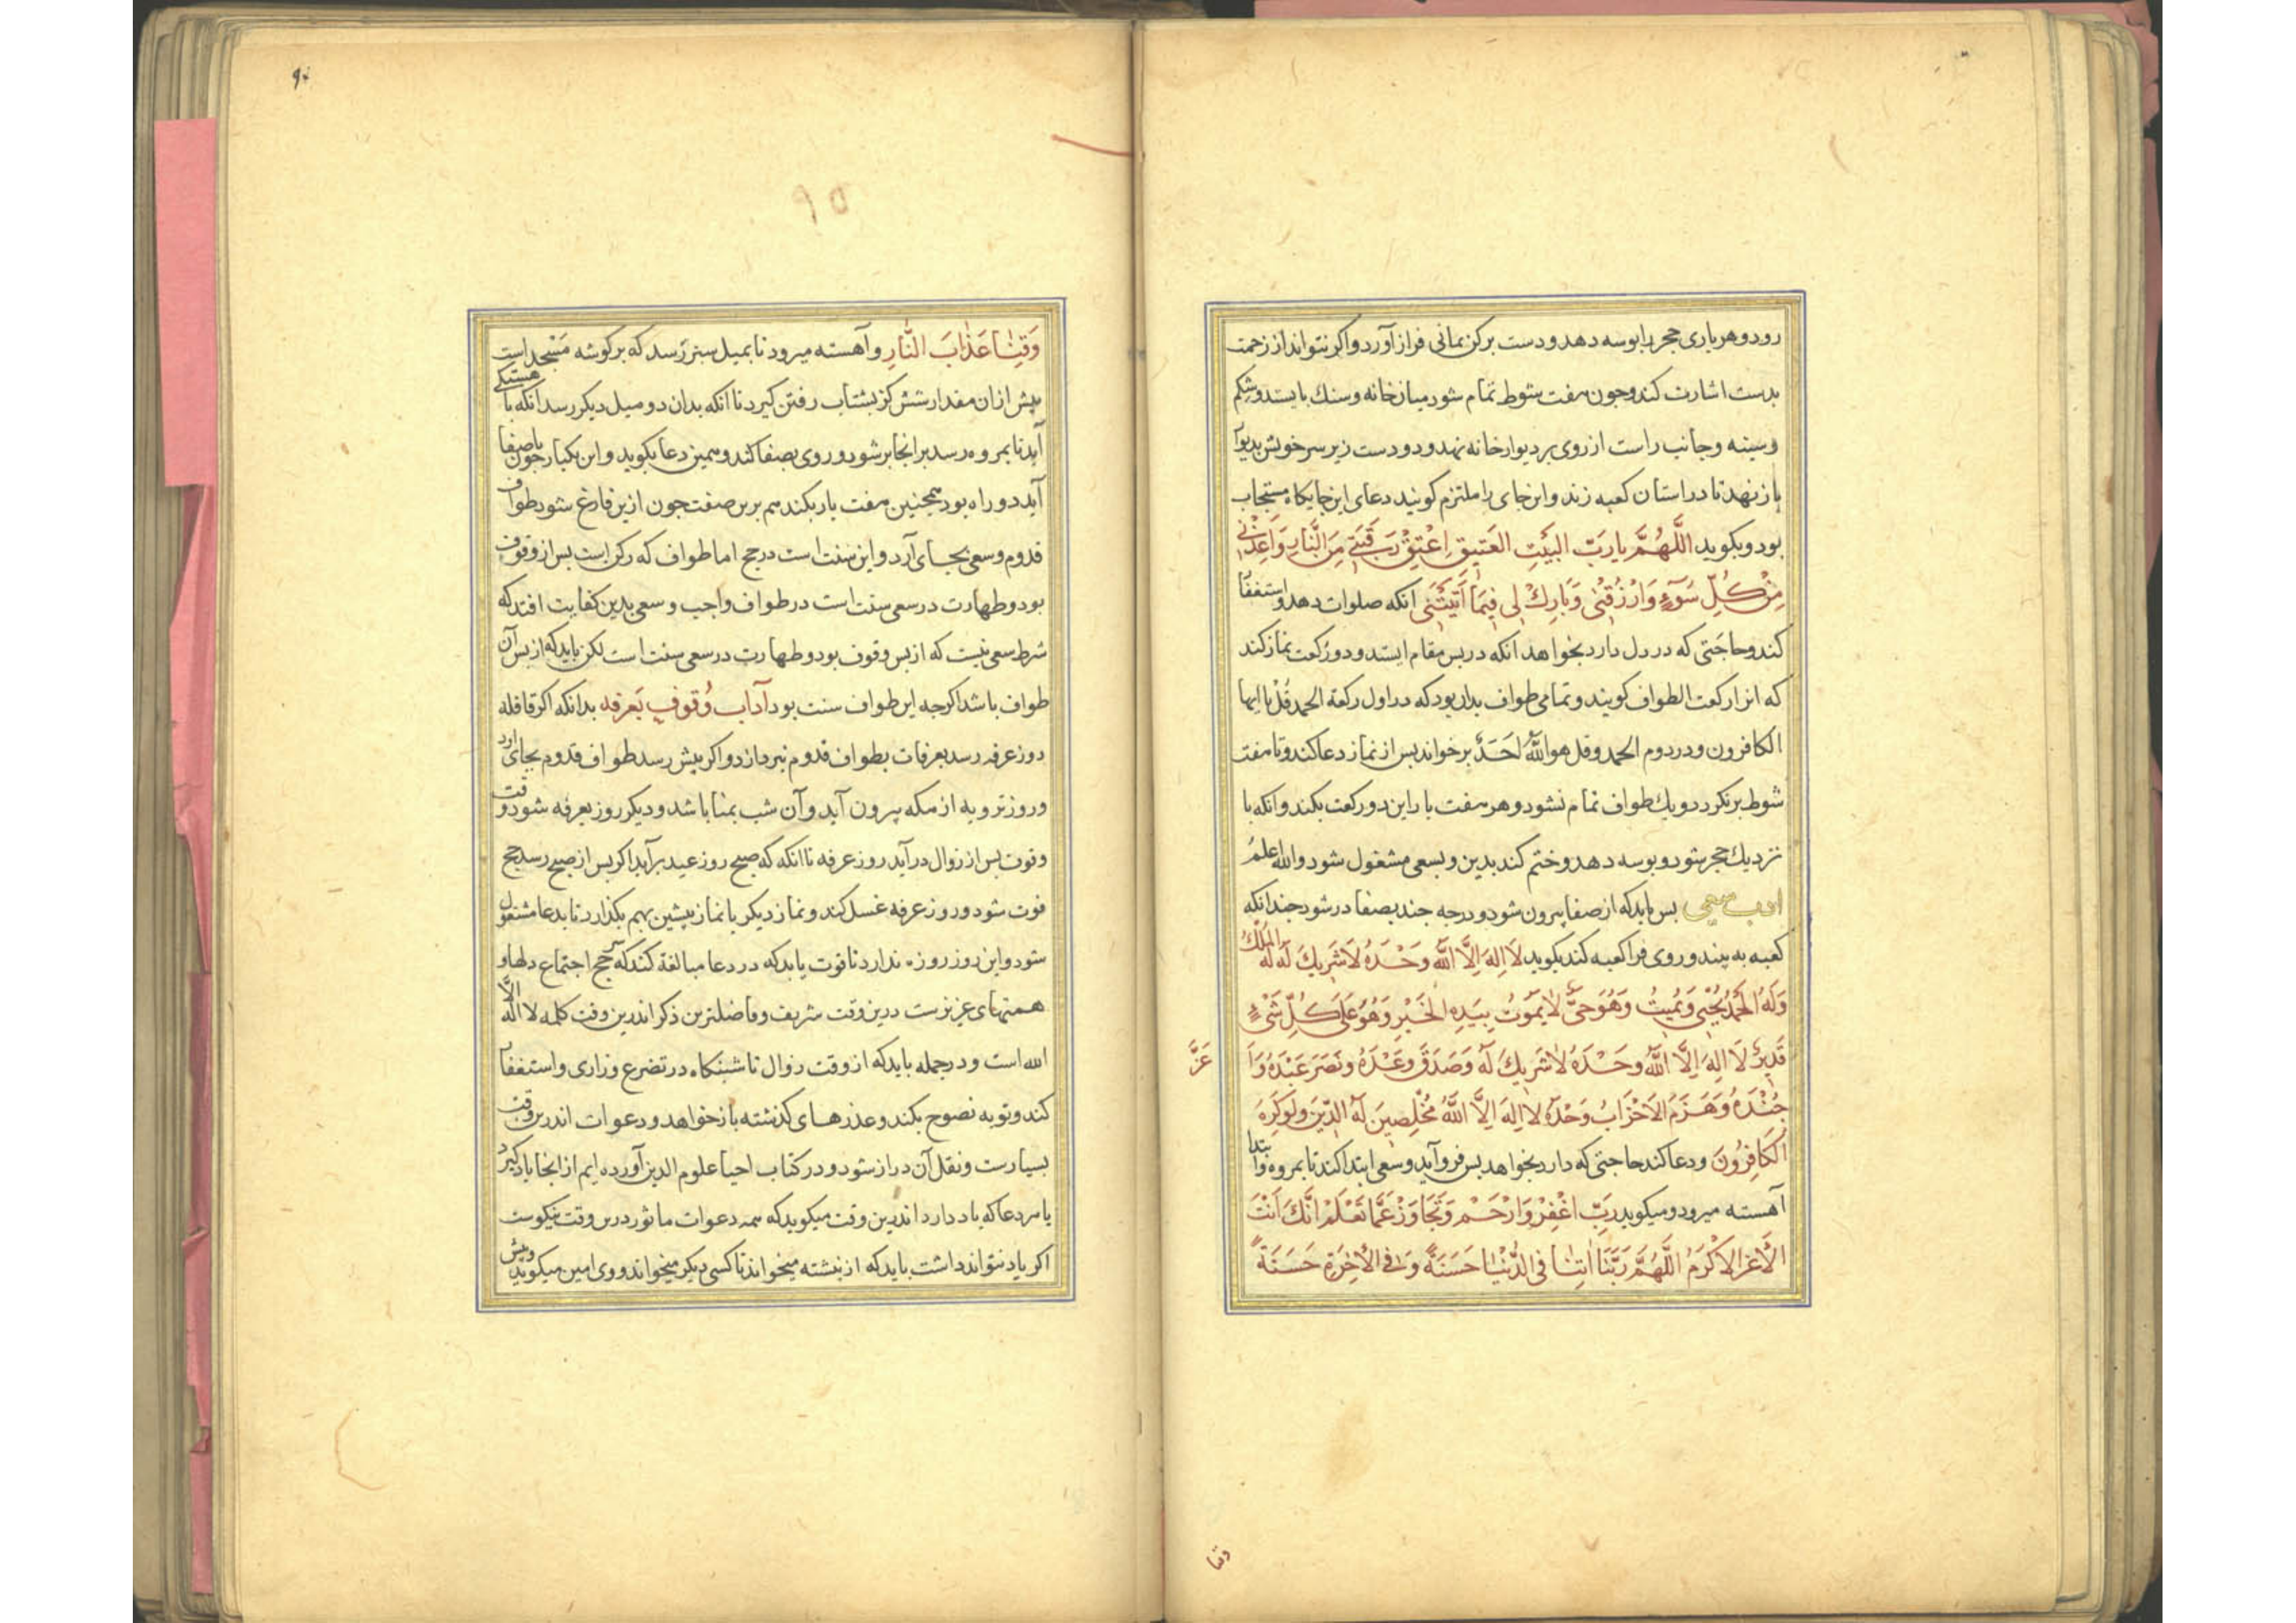 رود و هر باری حجر را بوسه دهد و دست برکن یمانی فراز آورد و اکر نتواند از زحمت
بدست اشارت کند و جون هفت شوط تمام شود میان خانه و سنك بایستد و شکم
و سینه و جانب راست از روی بر دیوار خانه نهد و دو دست زیر سر خویش بدیوار
باز نهد تا در استان کعبه زند و این جای را ملتزم کویند دعای این جایکاه مستجاب
بود و بکوید اللَّهُمَّ یا رَبّ البَیْتِ العَتِیقِ اِعْتِقْ رَقَبَتِی مِنَ النَّارِ وَاَعِذْنِی
مِنْ كُلِّ سُوٓءٍ وَارْزُقْنِی وَبَارِكْ لِی فِیمَا اٰتَیْتَنِی انکه صلوات دهد و استغفار
کند و حاجتی که در دل دارد بخواهد انکه در بس مقام ایستد و دو رکعت نماز کند
که انرا رکعت الطواف کویند و تمامی طواف بدان بود که در اول رکعة الحمد و قُلْ یا ایها
الکافرون و در دوم الحمد و قل هو اللّٰهُ اَحَدٌ برخواند بس از نماز دعا کند و تا هفت
شوط برنکردد ویك طواف تمام نشود و هر هفت بار این دو رکعت بکند و انکه با
نزدیك حجر شود و بوسه دهد و ختم کند بدین و بسعی مشغول شود واللّٰه اعلمُ
اداب سعی بس باید که از صفا بیرون شود و درجه جند بصفا در شود جندانکه
کعبه به بیند و روی فرا کعبه کند بکوید لَا اِلهَ اِلَّا اللّٰهُ وَحْدَهُ لَا شَرِیكَ لَهُ لَهُ الْمُلْكُ
وَلَهُ الْحَمْدُ یُحْیِی وَیُمِیتُ وَهُوَ حَیٌّ لَا یَمُوتُ بِیَدِهِ الْخَیْرِ وَهُوَ عَلَی كُلِّ شَیْءٍ
قَدِیرٌ لَا اِلهَ اِلَّا اللّٰهُ وَحْدَهُ لَا شَرِیكَ لَهُ وَصَدَقَ وَعْدَهُ وَنَصَرَ عَبْدَهُ وَاَ
عَزَّ
جُنْدَهُ وَهَزَمَ الاَحْزَابُ وَحْدَهُ لَا اِلهَ اِلَّا اللّٰهُ مُخْلِصِینَ لَهُ الدِّینَ وَلَوْ كَرِهَ
الْکَافِرُونَ و دعا کند حاجتی که دارد بخواهد بس فرو آید و سعی ابتدا کند تا بمروه و ابتدا
آهسته میرود و میکوید رَبِّ اغْفِرْ وَارْحَمْ وَتَجَاوَزْ عَمَّا تَعْلَمْ اِنَّكَ اَنْتَ
الْاَعَزُّ الْاَكْرَمُ اللَّهُمَّ رَبَّنَا اٰتِنَا فِی الدُّنْیَا حَسَنَةً وَفِی الْاٰخِرَةِ حَسَنَةً
وقنا
۹۵
وَقِنَا عَذَابَ النَّارِ و آهسته میرود تا بمیل سبز رسد که بر کوشه مَسْجد است
بیش از ان مقدار شش کز بشتاب رفتن کیرد تا انکه بدان دو میل دیکر رسد انکه باهستکی
آید تا بمروه رسد بر انجا بر شود و روی بصفا کند و همین دعا بکوید و این یکبار جون باصفا
آید دو راه بود همجنین هفت بار بکند هم برین صفت جون ازین فارغ شود طواف
قدوم و سعی بجای آرد و این سنت است در حج اما طواف که رکن است بس از وقوف
بود و طهارت در سعی سنت است در طواف واجب و سعی بدین کفایت افتد که
شرط سعی نیست که از بس وقوف بود و طهارت در سعی سنت است لکن باید که از بس آن
طواف باشد اکرجه این طواف سنت بود آدَاب وُقوفِ بَعرفه بدانکه اکر قافله
روز عرفه رسد بعرفات بطواف قدوم نبردازد و اکر بیش رسد طواف قدوم بجای اورد
و روز ترویه از مکه بیرون آید و آن شب بمنا باشد و دیکر روز بعرفه شود و وقت
وقوف بس از زوال در آید روز عرفه تا انکه که صبح روز عید برآید اکر بس از صبح رسد حج
فوت شود و روز عرفه غسل کند و نماز دیکر با نماز پیشین بهم بکذارد تا بدعا مشغول
شود و این روز روزه ندارد تا قوت یابد که در دعا مبالغة کند که سرّ حج اجتماع دلها و
همتهای عزیزست درین وقت شریف و فاضلترین ذکر اندرین وقت کلمه لا اله الّا
الله است و در جمله باید که از وقت زوال تا شبنکاه در تضرع و زاری و استغفار
کند و توبه نصوح بکند و عذرهای کذشته باز خواهد و دعوات اندرین وقت
بسیارست و نقل آن دراز شود و در کتاب احیا علوم الدین آورده ایم از انجا یاد کیرد
یا هر دعا که یاد دارد اندرین وقت میکوید که همه دعوات ماثور درین وقت نیکوست
اکر یاد نتواند داشت باید که از نبشته میخواند تا کسی دیکر میخواند و وی امین میکوید و بیش